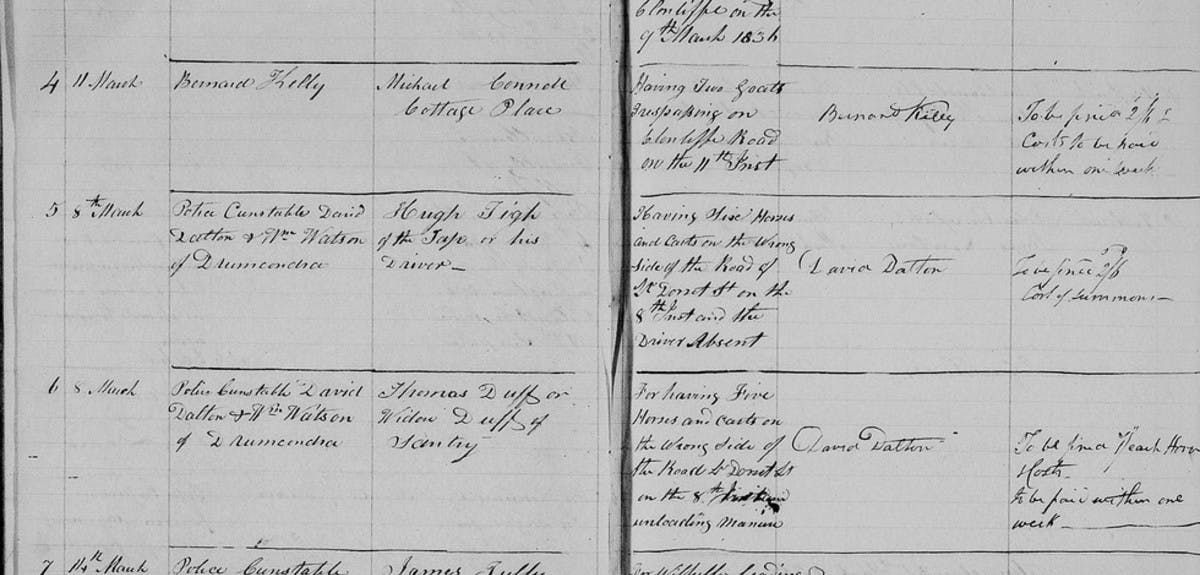 Clonliffe on the
9th March 1836
4 11 March Bernard Kelly Michael Connoll
Cottage Place
Having Two Goats
Trespassing on
Clonliffe Road
on the 11th Inst
Bernard Kelly
To be fined 2/6 &
Costs to be paid
within one week
5 8th March Police Cunstable David
Dalton & Wm Watson
of Drumcondra
Hugh Tigh
of the Tap or his
Driver
Having Five Horses
and Carts on the Wrong
Side of the Road of
Lr Dorset St on the
8th Inst and the
Driver Absent
David Dalton
To be fined 2/6
Cost of Summons
6 8 March Police Cunstable David
Dalton & Wm Watson
of Drumcondra
Thomas Duff or
Widow Duff of
Santry
For having Five
Horses and Carts on
the Wrong Side of
the Road Lr Dorset St
on the 8th
unloading Manure
David Dalton
To be fined 1/ each Horse
Costs
to be paid within one
week
7 14th March Police Cunstable James Tully
For Wilfully leading